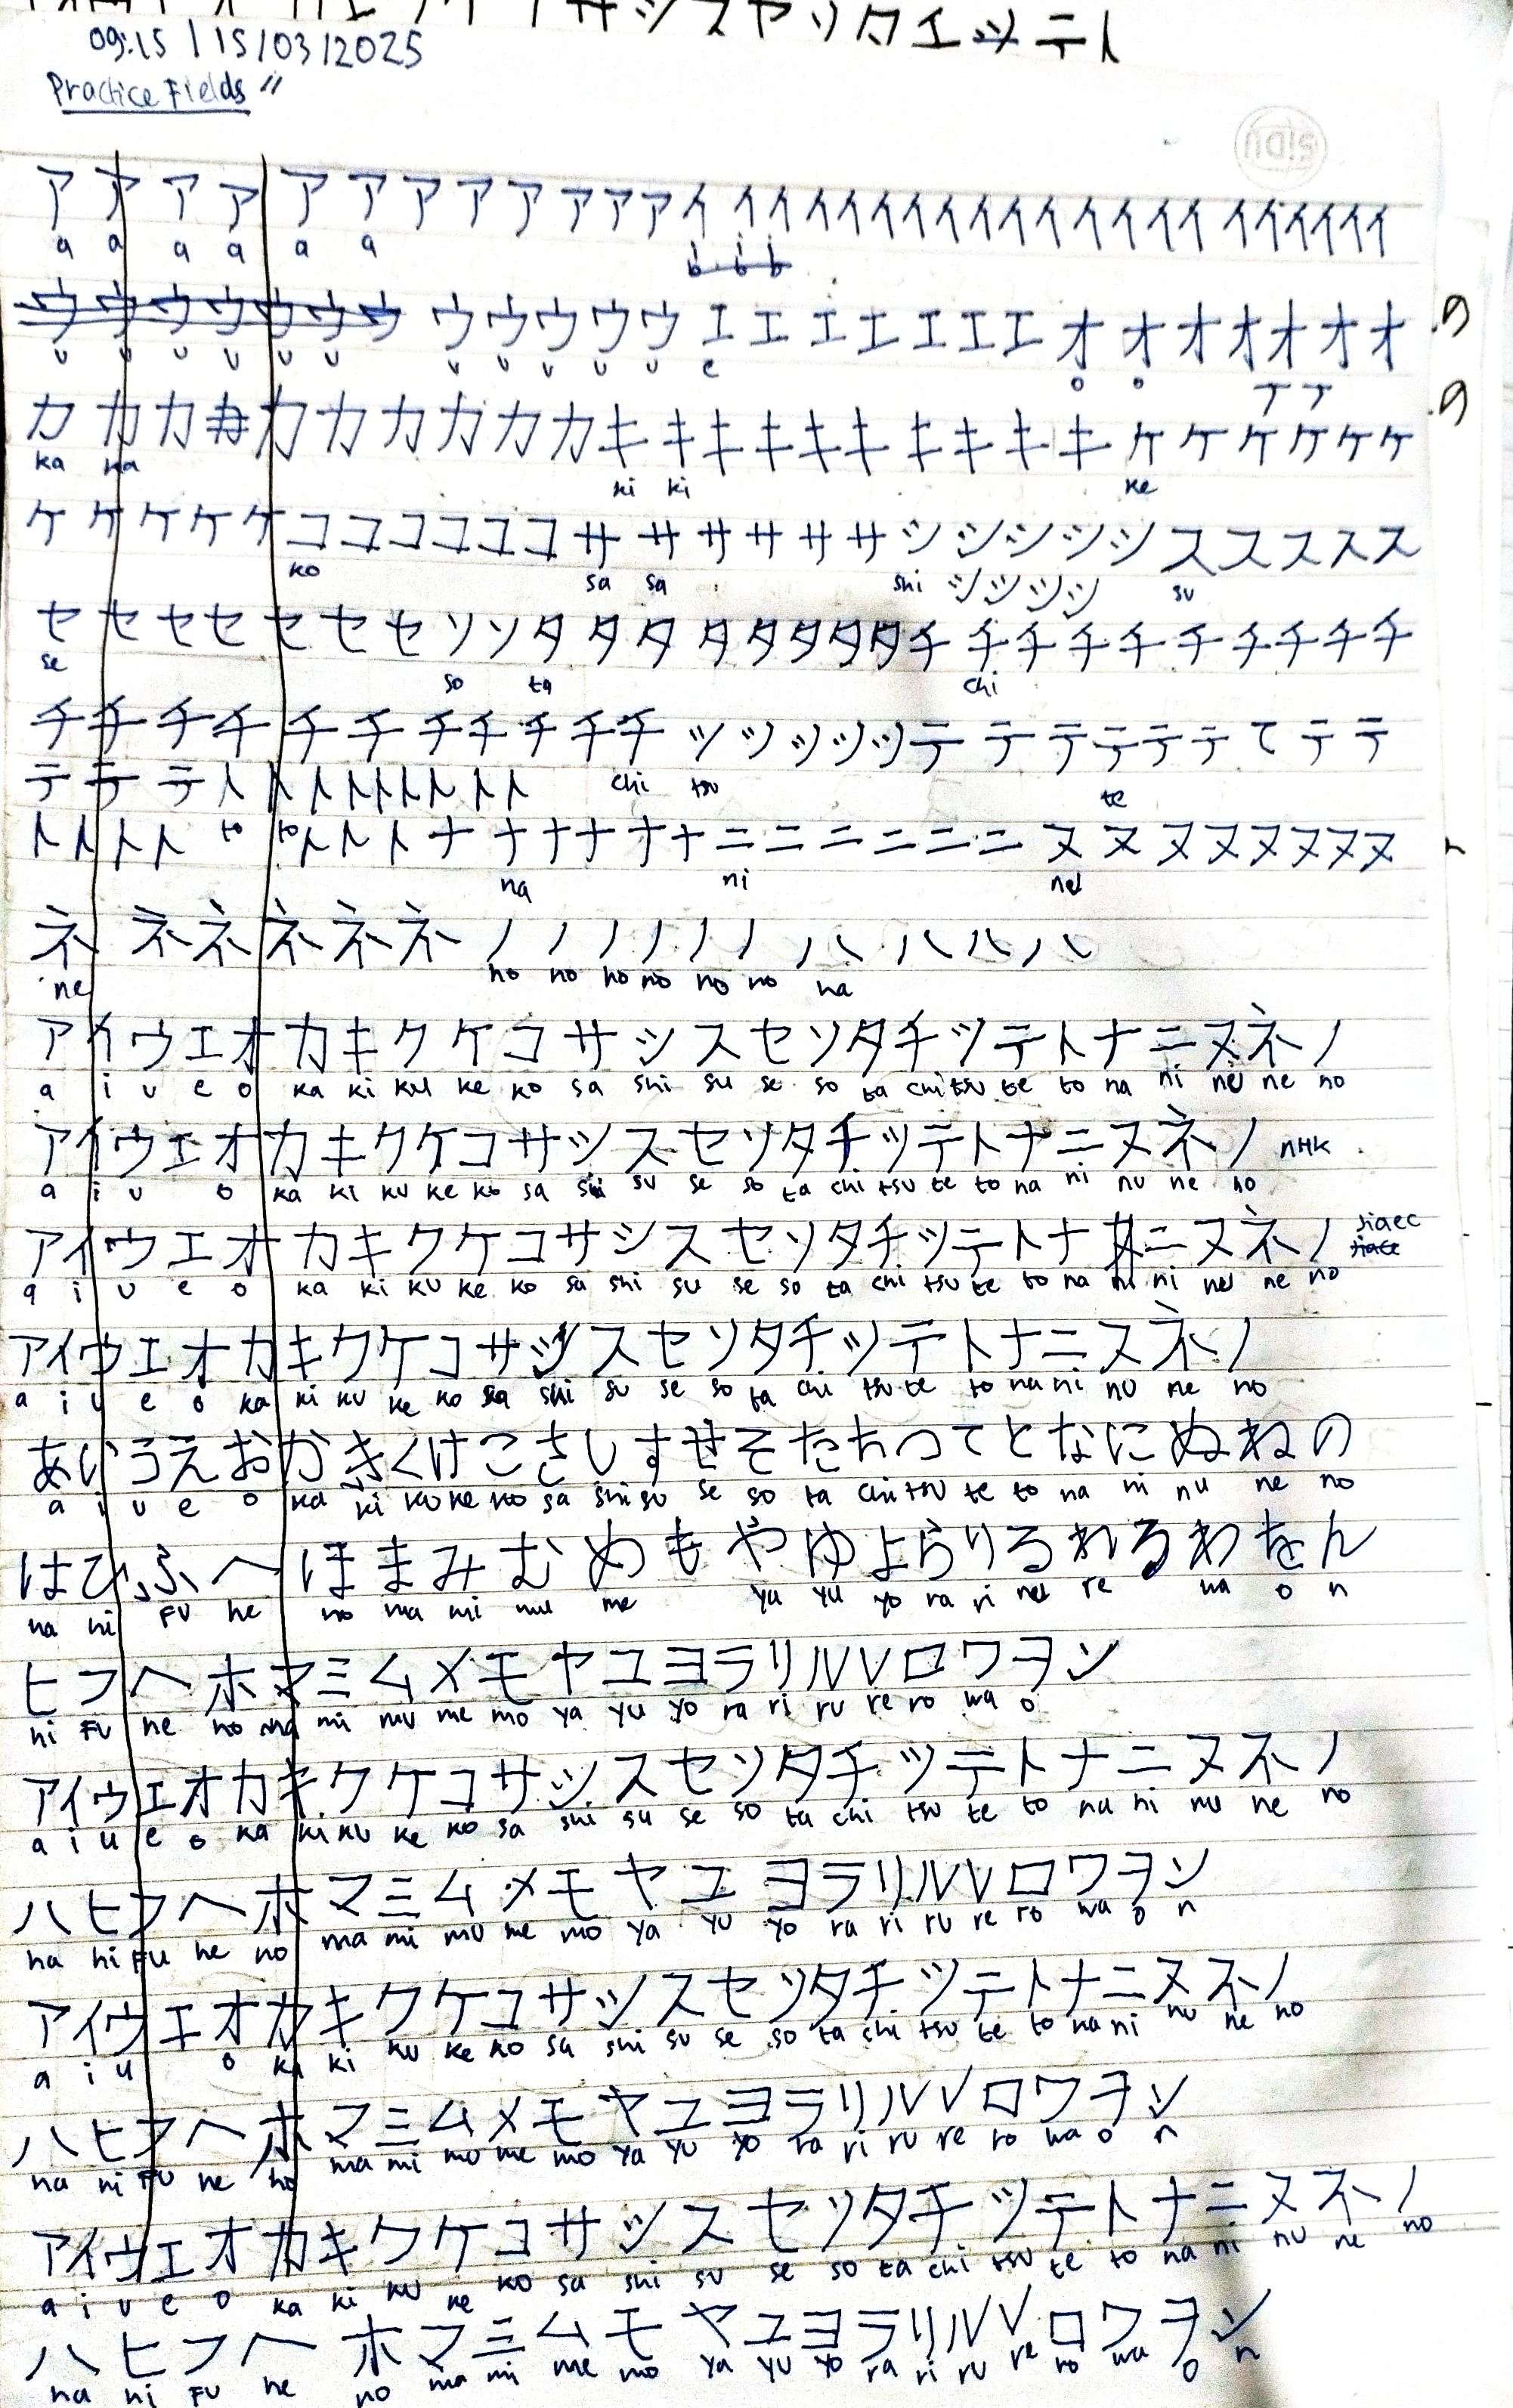 サシスヤソタエツテト
09:15 | 15/03/2025
Practice Fields "
SIDU
アアアアアアアアアアアアイイイイイイイイイイイイイイイイイイイイ
a a a a a a i i i
ウウウウウウウ ウウウウウエエエエエエエオオオオオオオ
u u u u u u u u u u u e o o
カカカカカカカカカカキキキキキキキキキキケケケケケケ
ka ka ki ki ke
ケケケケケココココココササササササシシシシシススススス
ko sa sa shi シシシシ su
セセセセセセセソソタタタタタタタタチチチチチチチチチチ
se so ta chi
チチチチチチチチチチチツツツツツテテテテテテてテテ
テテテトトトトトトトトト chi tsu te
トトトト to to トトトナナナナナナニニニニニニヌヌヌヌヌヌヌヌ
na ni nu
ネネネネネネノノノノノノハハハハ
ne no no no no no no ha
アイウエオカキクケコサシスセソタチツテトナニヌネノ
a i u e o ka ki ku ke ko sa shi su se so ta chi tsu te to na ni nu ne no
アイウエオカキクケコサシスセソタチツテトナニヌネノ NHK
a i u o ka ki ku ke ko sa shi su se so ta chi tsu te to na ni nu ne no
アイウエオカキクケコサシスセソタチツテトナニヌネノ siaec
a i u e o ka ki ku ke ko sa shi su se so ta chi tsu te to na ni ni nu ne no
アイウエオカキクケコサシスセソタチツテトナニヌネノ
a i u e o ka ki ku ke ko sa shi su se so ta chi tsu te to na ni nu ne no
あいうえおかきくけこさしすせそたちつてとなにぬねの
a i u e o ka ki ku ke ko sa shi su se so ta chi tsu te to na ni nu ne no
はひふへほまみむめもやゆよらりるれるわをん
ha hi fu he ho ma mi mu me ya yu yo ra ri ru re wa o n
ヒフヘホマミムメモヤユヨラリルレロワヲン
hi fu he ho ma mi mu me mo ya yu yo ra ri ru re ro wa o
アイウエオカキクケコサシスセソタチツテトナニヌネノ
a i u e o ka ki ku ke ko sa shi su se so ta chi tsu te to na ni nu ne no
ハヒフヘホマミムメモヤユヨラリルレロワヲン
ha hi fu he ho ma mi mu me mo ya yu yo ra ri ru re ro wa o n
アイウエオカキクケコサシスセソタチツテトナニヌネノ
a i u o ka ki ku ke ko sa shi su se so ta chi tsu te to na ni nu ne no
ハヒフヘホマミムメモヤユヨラリルレロワヲン
ha hi fu he ho ma mi mu me mo ya yu yo ra ri ru re ro wa o n
アイウエオカキクケコサシスセソタチツテトナニヌネノ
a i u e o ka ki ku ke ko sa shi su se so ta chi tsu te to na ni nu ne no
ハヒフヘホマミムモヤユヨラリルレロワヲン
ha hi fu he ho ma mi me mo ya yu yo ra ri ru re ro wa o n